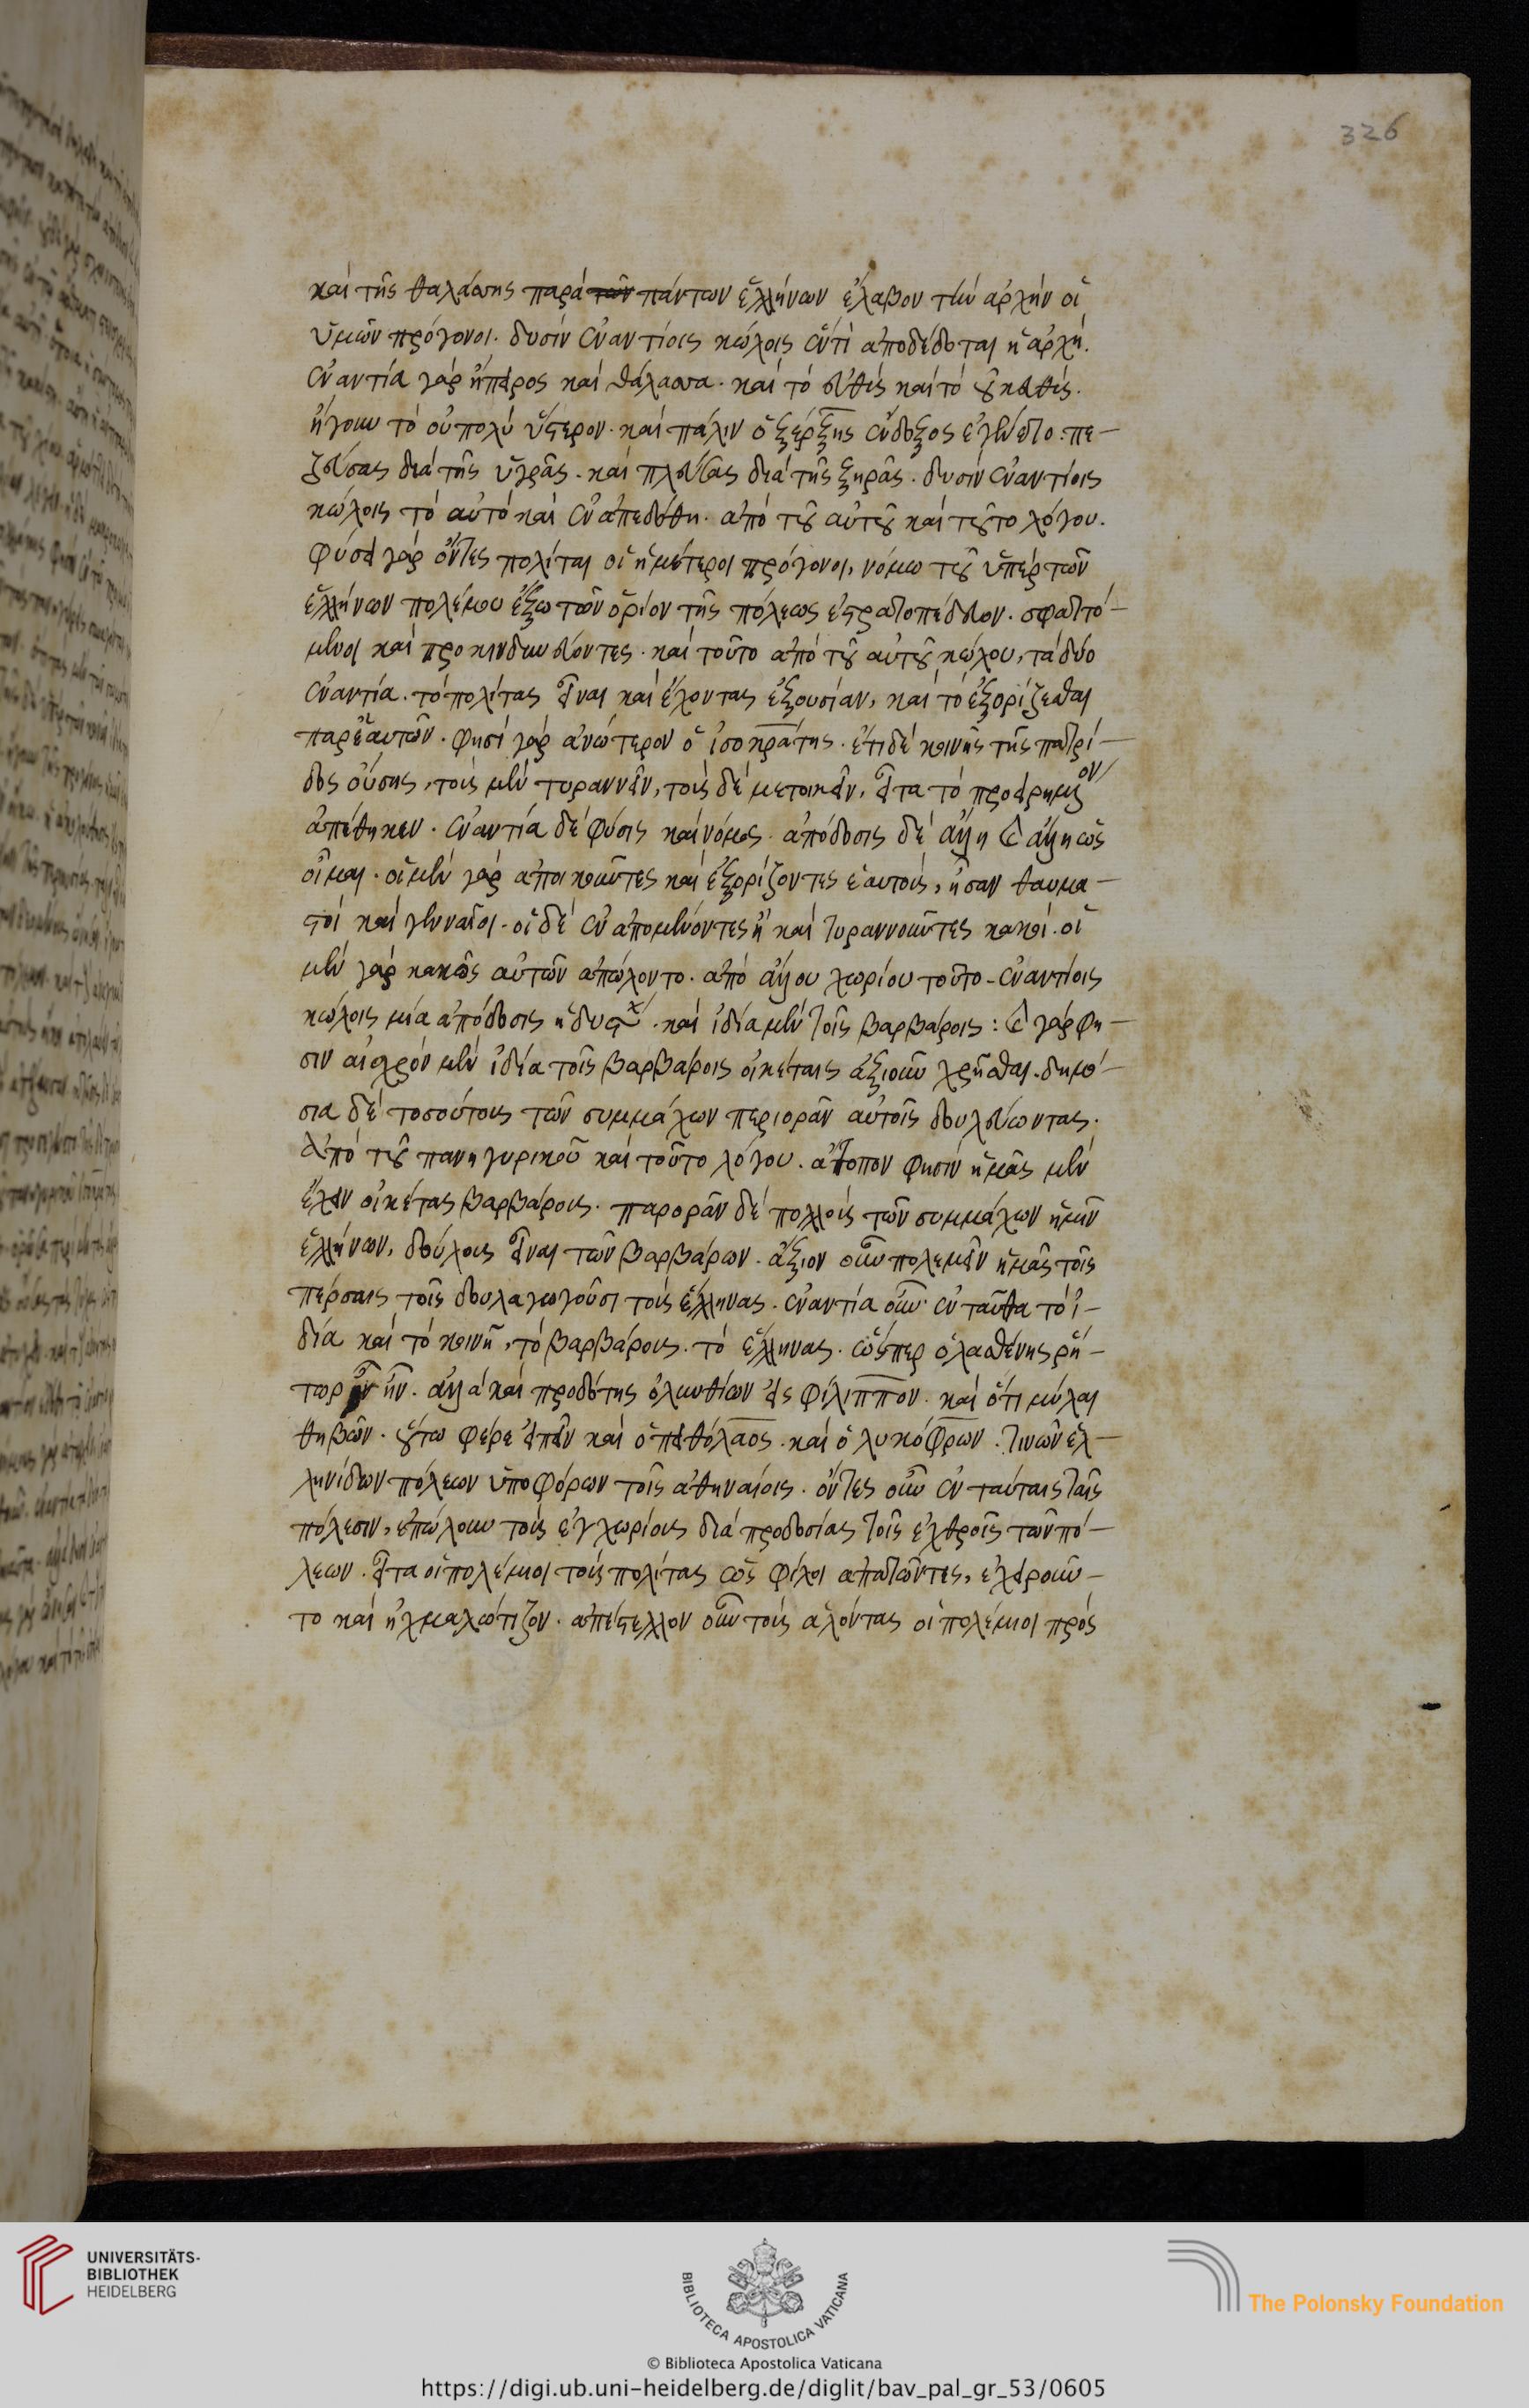 326
καὶ τῆς θαλάσσης παρὰ τῶν πάντων ἑλλήνων ἔλαβον τὴν ἀρχὴν οἱ
ὑμῶν πρόγονοι. δυσὶν ἐναντίοις κώλοις ἓν τί ἀποδέδοται ἡ ἀρχή.
ἐναντία γὰρ ἤπειρος καὶ θάλασσα. καὶ τὸ εὐθὺς καὶ τὸ οὐκ εὐθύς.
ἤγουν τὸ οὐ πολὺ ὕστερον. καὶ πάλιν ὁ ξέρξης ἔνδοξος ἐγένετο: πε-
ζεύσας διὰ τῆς ὑγρᾶς. καὶ πλεύσας διὰ τῆς ξηρᾶς. δυσὶν ἐναντίοις
κώλοις τὸ αὐτὸ καὶ ἓν ἀπεδόθη. ἀπὸ τοῦ αὐτοῦ καὶ τοῦτο λόγου.
φύσει γὰρ ὄντες πολίται οἱ ἡμέτεροι πρόγονοι, νόμω τοῦ ὑπὲρ τῶν
ἑλλήνων πολέμου ἔξω τῶν ὁρίον τῆς πόλεως ἐστρατοπέδευον. σφαττό-
μενοι καὶ προκινδυνεύοντες. καὶ τοῦτο ἀπὸ τοῦ αὐτοῦ κώλου, τὰ δύο
ἐναντία. τὸ πολίτας εἶναι καὶ ἔχοντας ἐξουσίαν, καὶ τὸ ἐξορίζεσθαι
παρ' ἑαυτῶν. φησὶ γὰρ ἀνώτερον ὁ ἰσοκράτης. ἔτι δὲ κοινῆς τῆς πατρί-
δος οὔσης, τοὺς μὲν τυραννεῖν, τοὺς δὲ μετοικεῖν, εἶτα τὸ προειρημένον
ἀπέθηκεν. ἐναντία δὲ φύσις καὶ νόμος. ἀπόδοσις δὲ ἄλλη καὶ ἄλλη ὡς
οἶμαι. οἱ μὲν γὰρ ἀποικοῦντες καὶ ἐξορίζοντες ἑαυτοὺς, ἦσαν θαυμα-
τοὶ καὶ γενναῖοι. οἱ δὲ ἐναπομένοντες ἢ καὶ τυραννοῦντες κακοί. οἱ
μὲν γὰρ κακῶς αὐτῶν ἀπώλοντο. ἀπὸ ἄλλου χωρίου τοῦτο. ἐναντίοις
κώλοις μία ἀπόδοσις ἡ δυστυχ. καὶ ἰδία μὲν τοῖς βαρβάροις: καὶ γάρ φη-
σιν αἰσχρὸν μὲν ἰδία τοῖς βαρβάροις οἰκέταις ἀξιοῦν χρῆσθαι. δημο-
σία δὲ τοσούτους τῶν συμμάχων περιορᾶν αὐτοῖς δουλεύωντας.
ἀπὸ τοῦ πανηγυρικοῦ καὶ τοῦτο λόγου. ἄτοπον φησὶν ἡμᾶς μὲν
ἔχειν οἰκέτας βαρβάρους. παρορᾶν δὲ πολλοὺς τῶν συμμάχων ἡμῖν
ἑλλήνων, δούλους εἶναι τῶν βαρβάρων. ἄξιον οὖν πολεμεῖν ἡμᾶς τοῖς
πέρσαις τοῖς δουλαγωγοῦσι τοὺς ἕλληνας. ἐναντία οὖν ἐνταῦθα τὸ ἰ-
δία καὶ τὸ κοινῆ, τὸ βαρβάρους. τὸ ἕλληνας. ὥσπερ ὁ λασθένης ῥή-
τωρ ἦν. ἀλλὰ καὶ προδότης ὀλυνθίων εἰς φίλιππον. καὶ ὅτι μύλαι
θηβῶν. οὕτω φέρε εἰπεῖν καὶ ὁ πειθόλαος. καὶ ὁ λυκόφρων. τινῶν ἑλ-
ληνίδων πόλεων ὑποφόρων τοῖς ἀθηναίοις. ὄντες οὖν ἐν ταύταις ταῖς
πόλεσιν, ἐπώλουν τοὺς ἐγχωρίους διὰ προδοσίας τοῖς ἐχθροῖς τῶν πό-
λεων. εἶτα οἱ πολέμιοι τοὺς πολίτας ὡς φίλοι ἀπατῶντες, ἐχειροῦν-
το καὶ ἠχμαλώτιζον. ἀπέστελλον οὖν τοὺς ἁλόντας οἱ πολέμιοι πρὸς
UNIVERSITÄTS-
BIBLIOTHEK
HEIDELBERG
BIBLIOTECA APOSTOLICA VATICANA
The Polonsky Foundation
© Biblioteca Apostolica Vaticana
https://digi.ub.uni-heidelberg.de/diglit/bav_pal_gr_53/0605